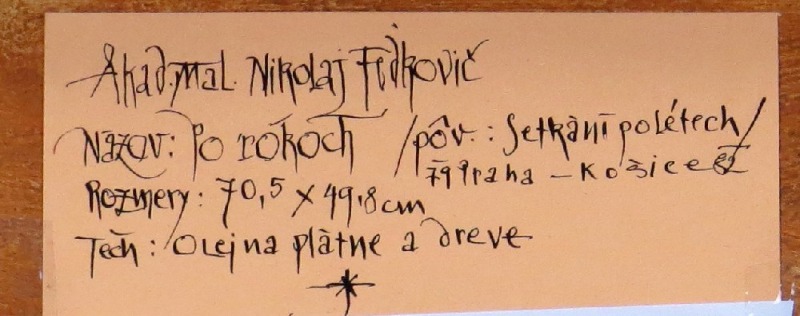 Akad.mal. Nikolaj Fedkovič
Názov: Po rokoch /pôv.: Setkání po létech/
79 Praha - Košice 82
Rozmery: 70,5 x 49,8 cm
Tech: Olej na plátne a dreve